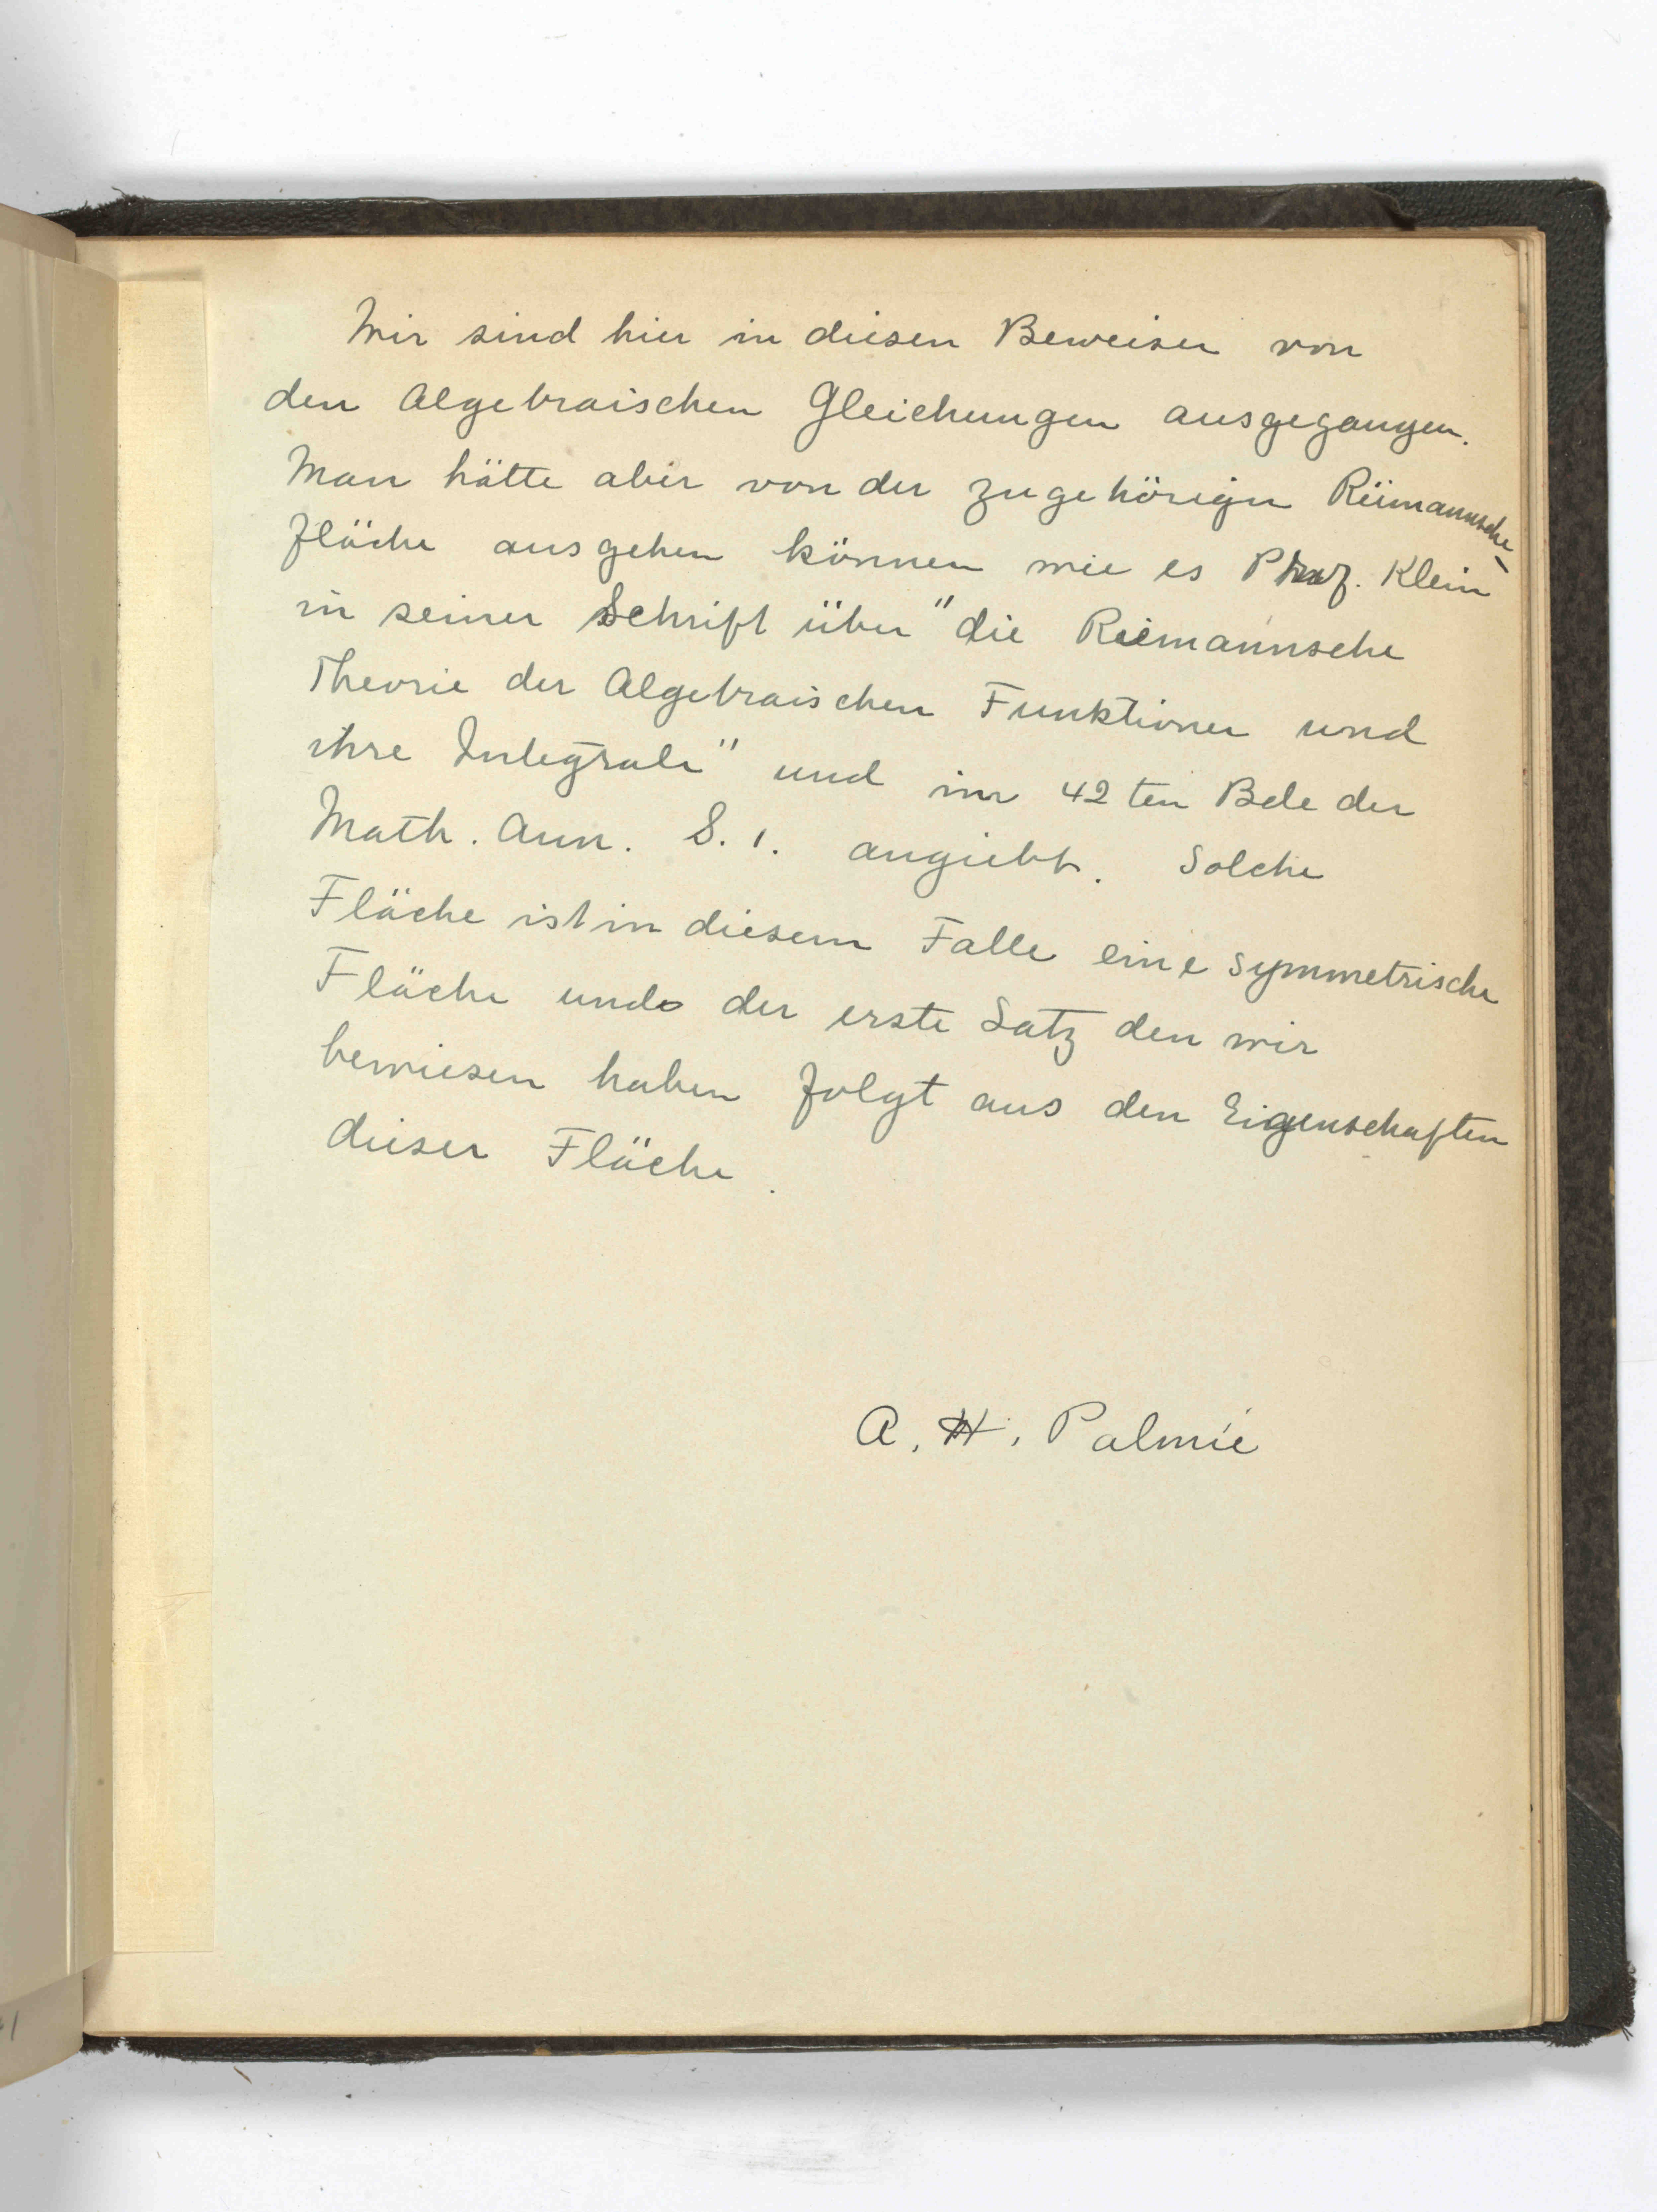 Wir sind hier in diesen Beweisen von
den Algebraischen Gleichungen ausgegangen.
Man hätte aber von der zugehörigen Riemannsche
Fläche ausgehen können wie es Prof. Klein
in seiner Schrift über "die Riemannsche
Theorie der Algebraischen Funktionen und
ihre Integrale" und im 42ten Bde der
Math. Ann. S. 1. angiebt. Solche
Fläche ist in diesem Falle eine symmetrische
Fläche und der erste Satz den wir
bewiesen haben folgt aus den Eigenschaften
dieser Fläche.
A. H. Palmié